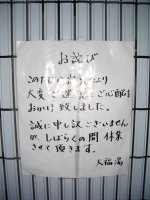 お詫び
この
大変ご迷惑ご心配を
おかけ致しました。
誠に申し訳ございません
が、しばらくの間休業
させて頂きます。
大福湯